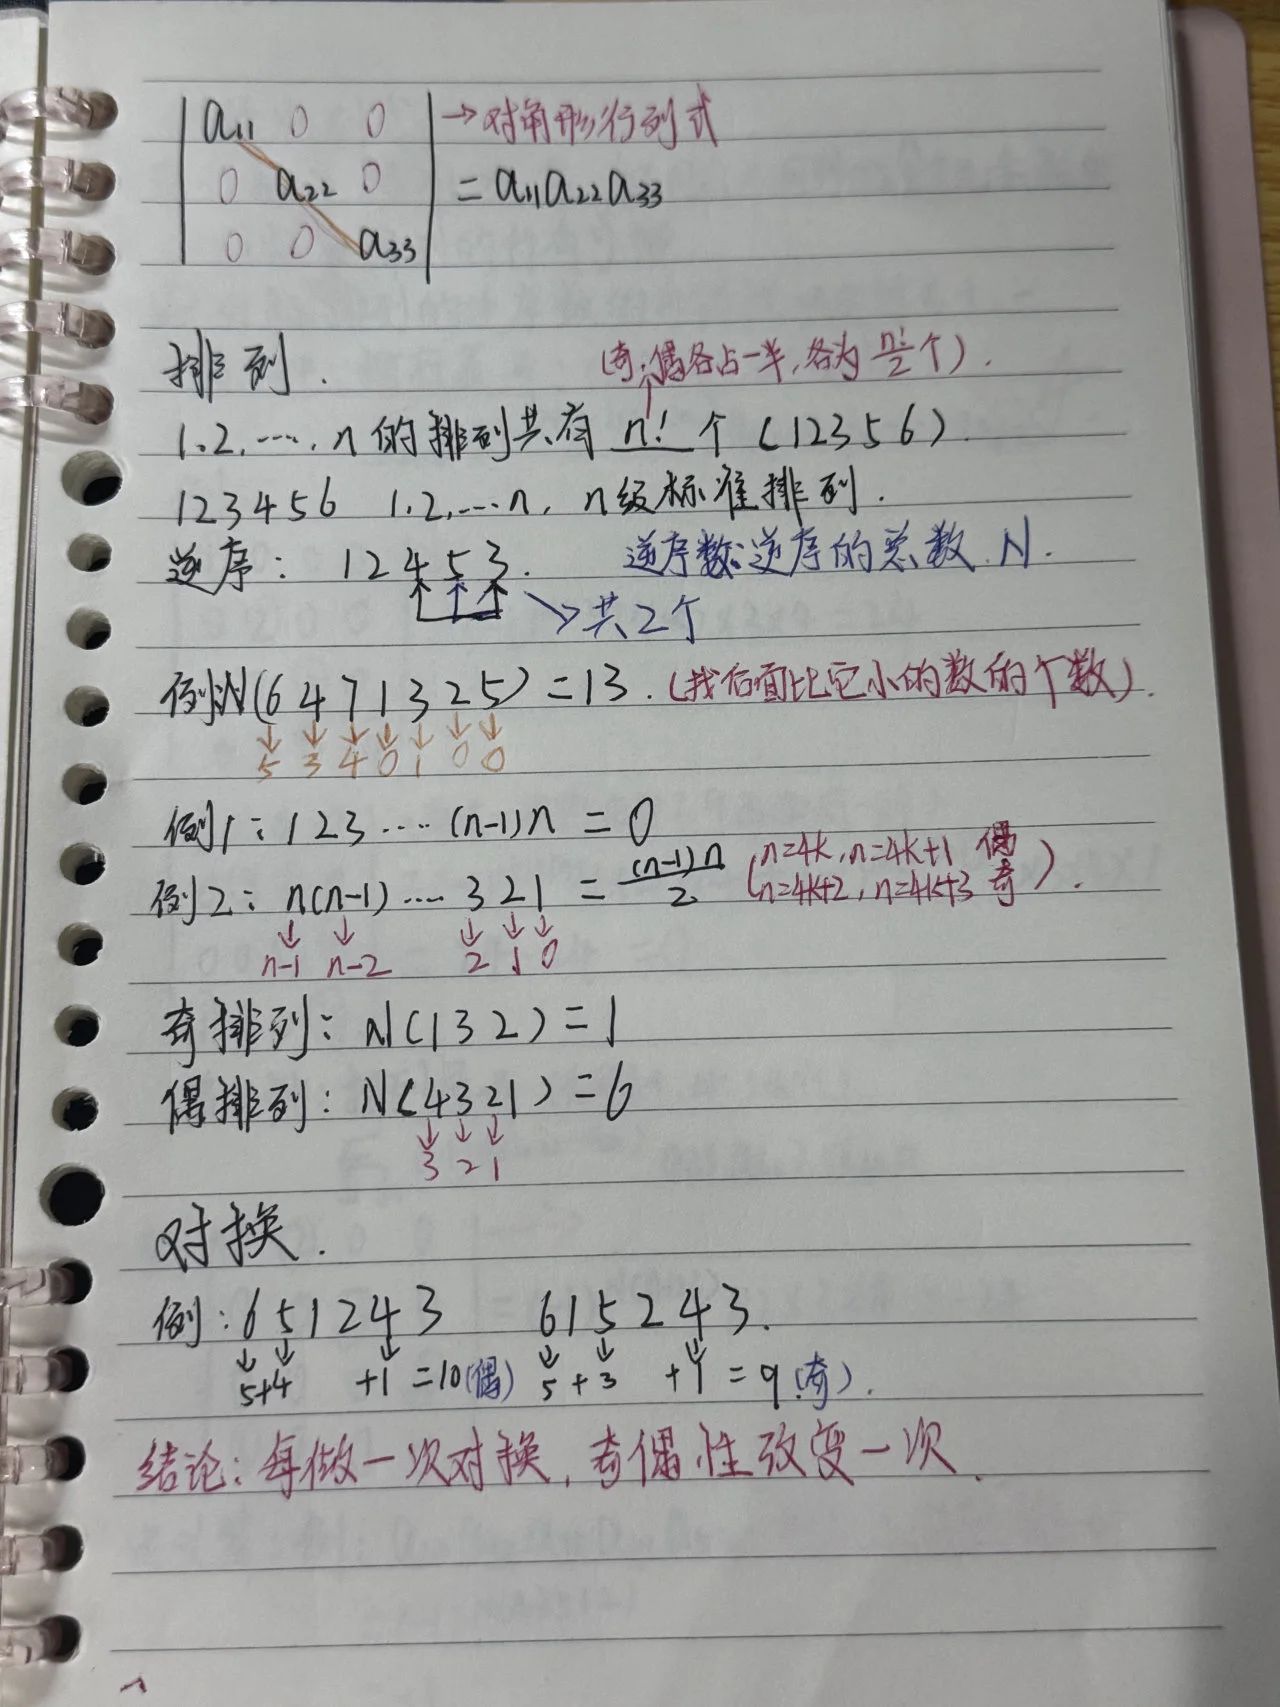 a₁₁ 0 0 → 对角形行列式
0 a₂₂ 0 = a₁₁a₂₂a₃₃
0 0 a₃₃
排列. (奇.偶各占一半,各为 n!/2 个).
1.2.….n 的排列共有 n! 个 (12356).
123456 1.2.…n. n级标准排列.
逆序: 12453. 逆序数:逆序的总数.N.
↘共2个
例:N(6471325)=13.(找后面比它小的数的个数).
↓ ↓ ↓ ↓ ↓ ↓ ↓
5 3 4 0 1 0 0
例1: 123….(n-1)n = 0
例2: n(n-1)….321 = (n-1)n/2 (n=4k,n=4k+1 偶
n=4k+2,n=4k+3 奇).
↓ ↓ ↓ ↓ ↓
n-1 n-2 2 1 0
奇排列: N(132)=1
偶排列: N(4321)=6
↓ ↓ ↓
3 2 1
对换.
例:651243 615243.
↓ ↓ ↓ ↓ ↓ ↓
5+4 +1 =10(偶) 5+3 +1 =9(奇).
结论:每做一次对换,奇偶性改变一次.